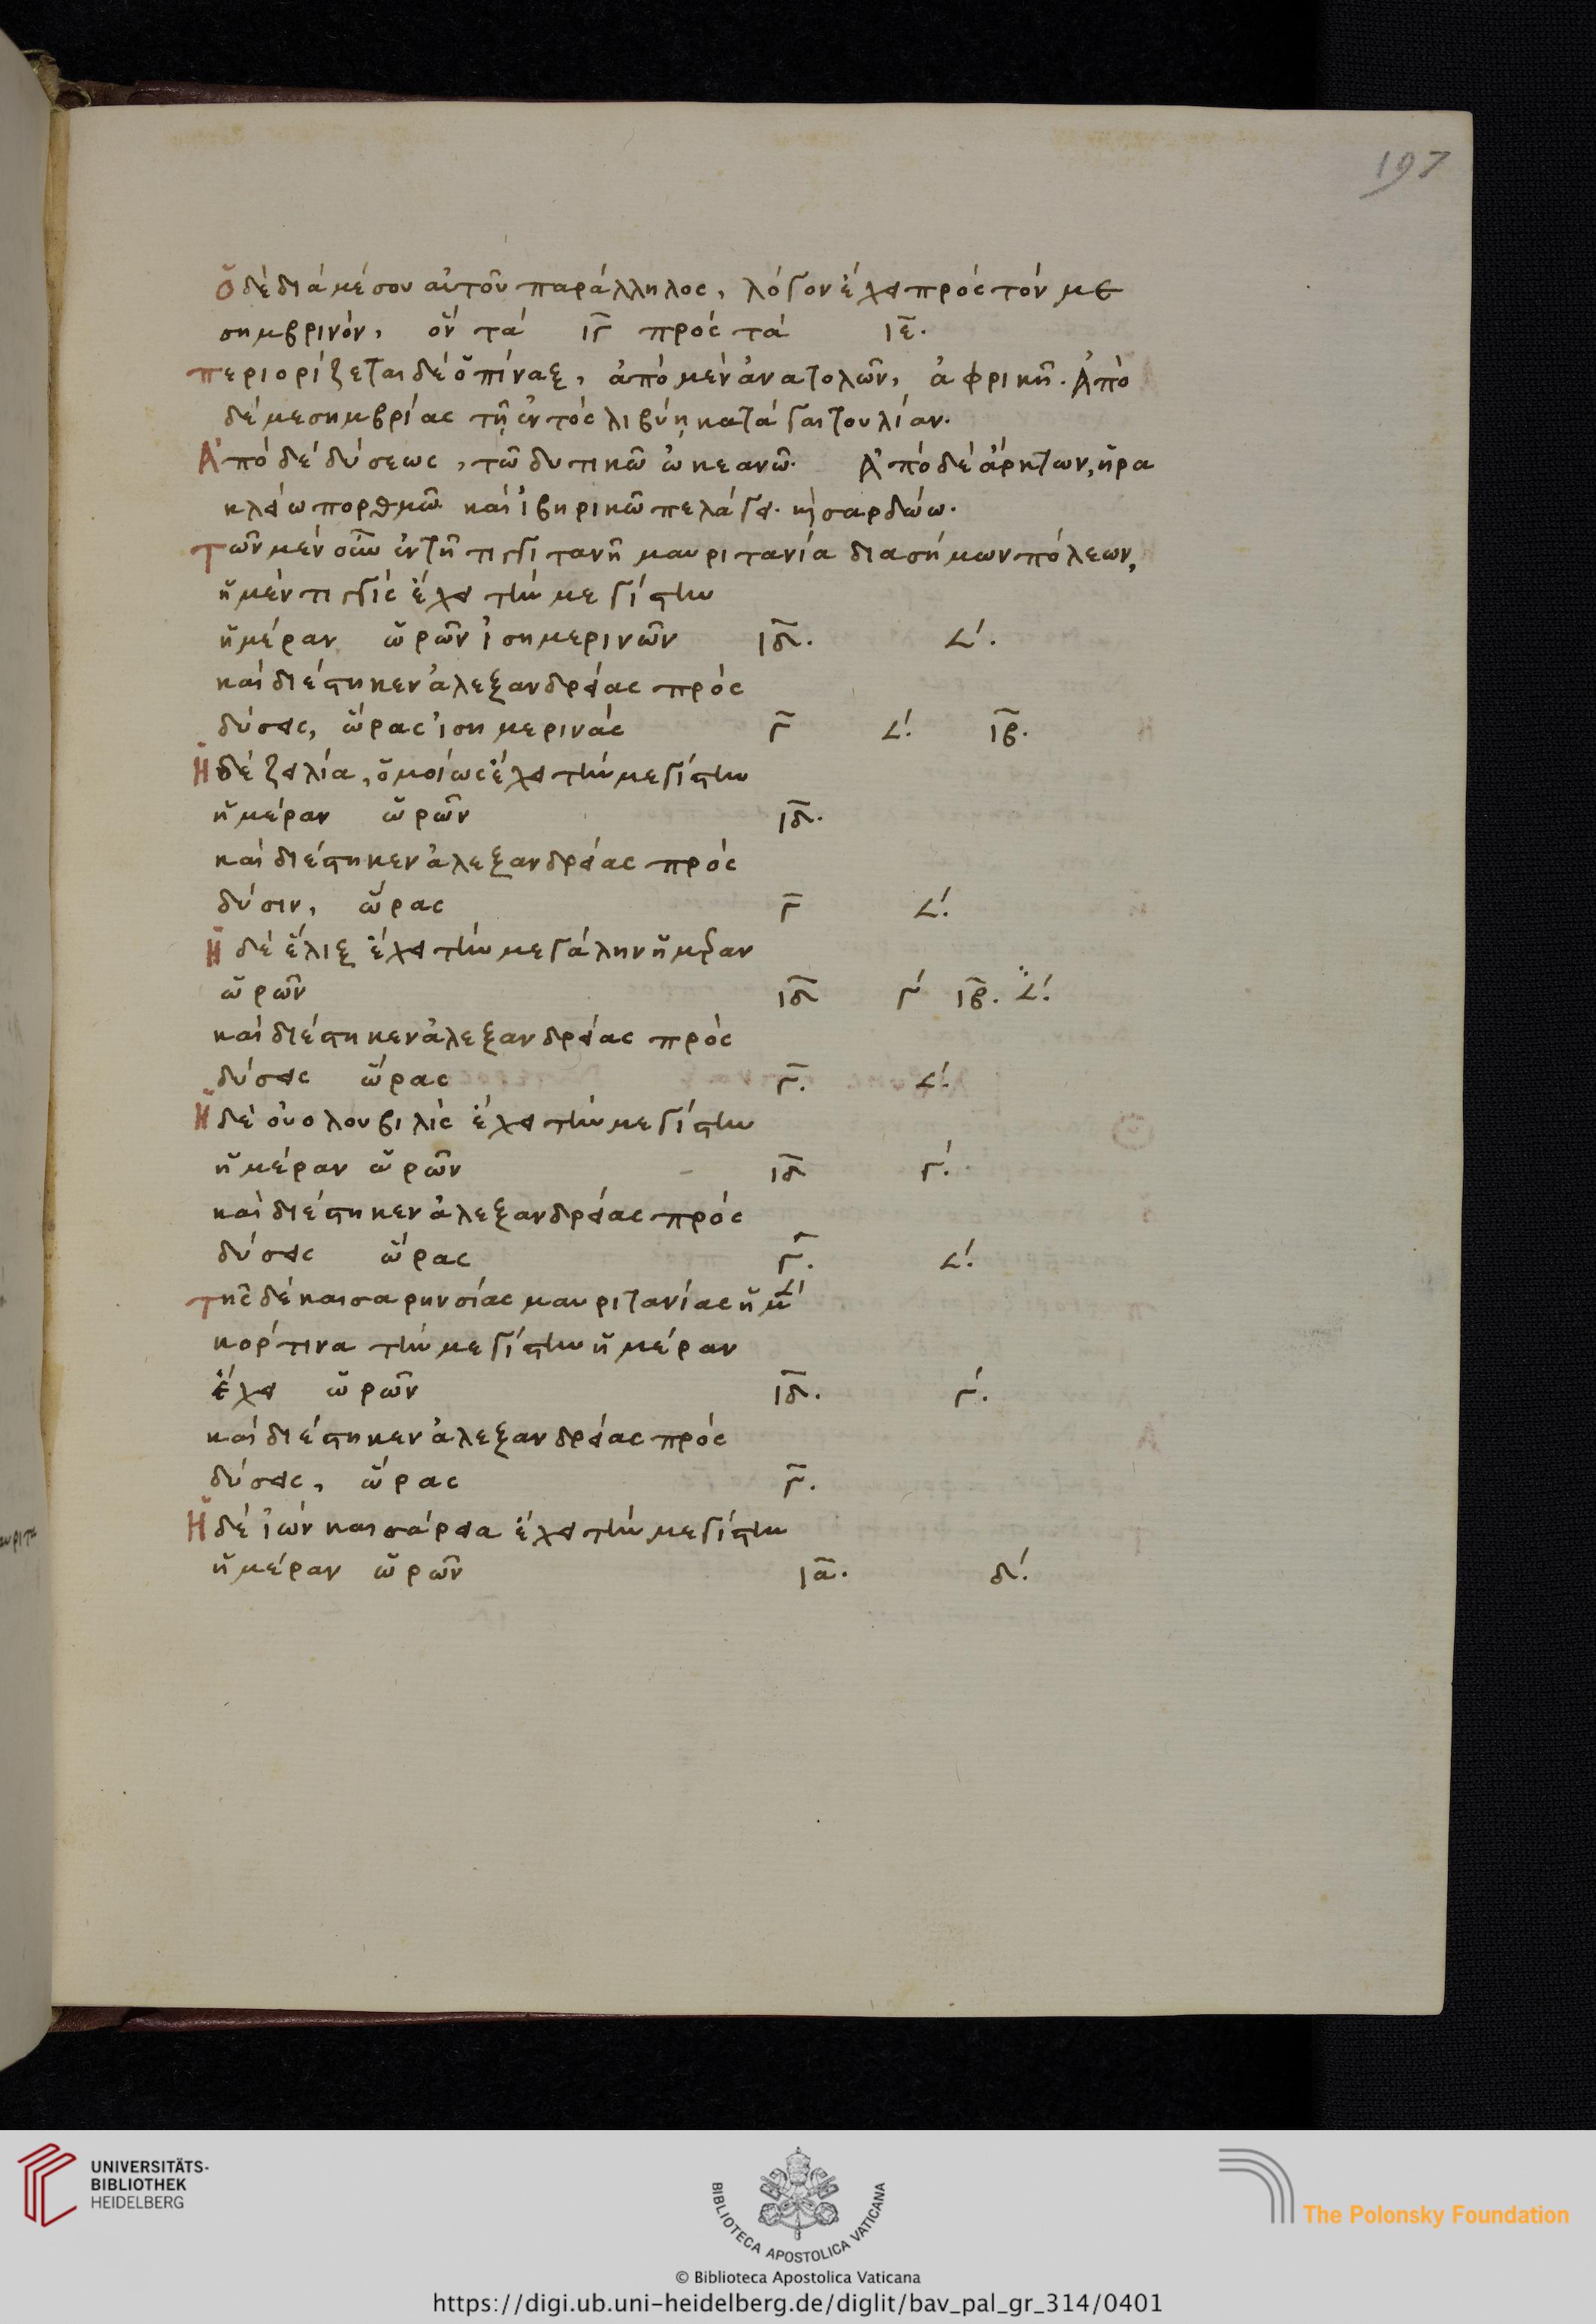 197
Ὁ δὲ διὰ μέσου αὐτοῦ παράλληλος, λόγον ἔχει πρὸς τὸν με
σημβρινόν, ὃν τὰ ιγ πρὸς τὰ ιε.
περιορίζεται δὲ ὁ πίναξ, ἀπὸ μὲν ἀνατολῶν, ἀφρικῆ. Ἀπὸ
δὲ μεσημβρίας τῆ ἐντὸς λιβύη κατὰ γαιτουλίαν.
Ἀπὸ δὲ δύσεως, τῶ δυτικῶ ὠκεανῶ. Ἀπὸ δὲ ἄρκτων, ἡρα
κλείω πορθμῶ καὶ ἰβηρικῶ πελάγει. καὶ σαρδώω.
τῶν μὲν οὖν ἐν τῆ τιγγιτανῆ μαυριτανία διασήμων πόλεων,
ἡ μὲν τιγγὶς ἔχει τὴν μεγίστην
ἡμέραν ὡρῶν ἰσημερινῶν ιδ. ∠΄.
καὶ διέστηκεν ἀλεξανδρείας πρὸς
δύσεις, ὥρας ἰσημερινὰς γ ∠΄. ιβ.
Ἡ δὲ ζειλία, ὁμοίως ἔχει τὴν μεγίστην
ἡμέραν ὡρῶν ιδ.
καὶ διέστηκεν ἀλεξανδρείας πρὸς
δύσιν, ὥρας γ ∠΄.
Ἡ δὲ ἕλιξ ἔχει τὴν μεγάλην ἡμέραν
ὡρῶν ιδ γ΄ ιβ. ∠΄.
καὶ διέστηκεν ἀλεξανδρείας πρὸς
δύσεις ὥρας γ. ∠΄.
Ἡ δὲ οὐολουβιλὶς ἔχει τὴν μεγίστην
ἡμέραν ὡρῶν ιδ γ΄.
καὶ διέστηκεν ἀλεξανδρείας πρὸς
δύσεις ὥρας γ. ∠΄.
τῆς δὲ καισαρηνσίας μαυριτανίας ἡ μὲν
κορτινα τὴν μεγίστην ἡμέραν
ἔχει ὡρῶν ιδ. γ΄.
καὶ διέστηκεν ἀλεξανδρείας πρὸς
δύσεις, ὥρας γ.
Ἡ δὲ ἰὼν καισάρεια ἔχει τὴν μεγίστην
ἡμέραν ὡρῶν ια. δ΄.
UNIVERSITÄTS-
BIBLIOTHEK
HEIDELBERG
BIBLIOTECA APOSTOLICA VATICANA
The Polonsky Foundation
© Biblioteca Apostolica Vaticana
https://digi.ub.uni-heidelberg.de/diglit/bav_pal_gr_314/0401